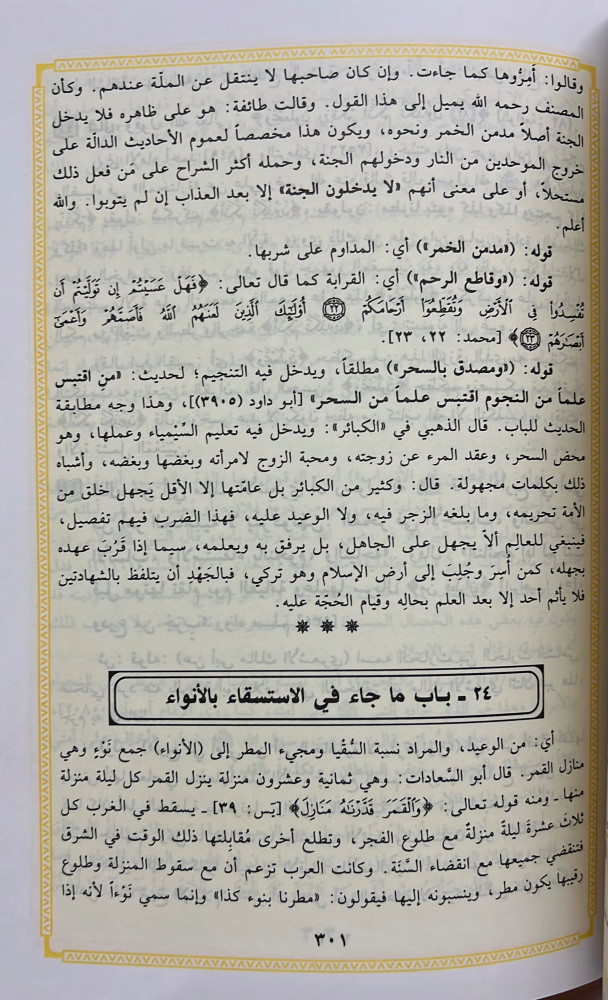 وقالوا: أَمِرُّوها كما جاءت. وإن كان صاحبها لا ينتقل عن الملّة عندهم. وكأن
المصنف رحمه الله يميل إلى هذا القول. وقالت طائفة: هو على ظاهره فلا يدخل
الجنة أصلاً مدمن الخمر ونحوه، ويكون هذا مخصصاً لعموم الأحاديث الدالّة على
خروج الموحدين من النار ودخولهم الجنة، وحمله أكثر الشراح على مَن فعل ذلك
مستحلاً، أو على معنى أنهم «لا يدخلون الجنة» إلا بعد العذاب إن لم يتوبوا. والله
أعلم.
قوله: («مدمن الخمر») أي: المداوم على شربها.
قوله: («وقاطع الرحم») أي: القرابة كما قال تعالى: ﴿فَهَلْ عَسَيْتُمْ إِن تَوَلَّيْتُمْ أَن
تُفْسِدُوا۟ فِى ٱلْأَرْضِ وَتُقَطِّعُوٓا۟ أَرْحَامَكُمْ ۝٢٢ أُو۟لَـٰٓئِكَ ٱلَّذِينَ لَعَنَهُمُ ٱللَّهُ فَأَصَمَّهُمْ وَأَعْمَىٰٓ
أَبْصَـٰرَهُمْ ۝٢٣﴾ [محمد: ٢٢، ٢٣].
قوله: («ومصدق بالسحر») مطلقاً، ويدخل فيه التنجيم؛ لحديث: «من اقتبس
علماً من النجوم اقتبس علماً من السحر» [أبو داود (٣٩٠٥)]، وهذا وجه مطابقة
الحديث للباب. قال الذهبي في «الكبائر»: ويدخل فيه تعليم السِّيْمياء وعملها، وهو
محض السحر، وعقد المرء عن زوجته، ومحبة الزوج لامرأته وبغضها وبغضه، وأشباه
ذلك بكلمات مجهولة. قال: وكثير من الكبائر بل عامّتها إلا الأقل يَجهل خلق من
الأمة تحريمه، وما بلغه الزجر فيه، ولا الوعيد عليه، فهذا الضرب فيهم تفصيل،
فينبغي للعالم ألاّ يجهل على الجاهل، بل يرفق به ويعلمه، سيما إذا قَرُبَ عهده
بجهله، كمن أُسِرَ وجُلِبَ إلى أرض الإسلام وهو تركي، فبالجَهْدِ أن يتلفظ بالشهادتين
فلا يأثم أحد إلا بعد العلم بحالِه وقيام الحُجّة عليه.
* * *
٢٤ ـ بـاب ما جاء في الاستسقاء بالأنواء
أي: من الوعيد، والمراد نسبة السُّقْيا ومجيء المطر إلى (الأنواء) جمع نَوْءٍ وهي
منازل القمر. قال أبو السَّعادات: وهي ثمانية وعشرون منزلة ينزل القمر كل ليلة منزلة
منها ـ ومنه قوله تعالى: ﴿وَٱلْقَمَرَ قَدَّرْنَـٰهُ مَنَازِلَ﴾ [يَس: ٣٩] ـ يسقط في الغرب كل
ثلاثَ عشرةَ ليلةً منزلةٌ مع طلوع الفجر، وتطلع أخرى مُقابِلتها ذلك الوقت في الشرق
فتنقضي جميعها مع انقضاء السَّنَة. وكانت العرب تزعم أن مع سقوط المنزلة وطلوع
رقيبها يكون مطر، وينسبونه إليها فيقولون: «مطرنا بنوء كذا» وإنما سمي نَوْءاً لأنه إذا
٣٠١